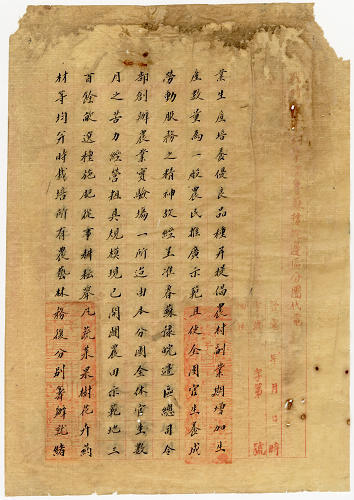 業生產培養優良品種并提倡農村副業期增加生
產數量為一般農民推廣示範且使全團官生養成
勞動服務之精神故經呈准蘇皖邊區總司令
部創辦農業實驗場一所迄由本分團全体官生數
月之苦力經營粗具規模現已開闢農田示範地三
百餘畝選種施肥從事耕耘舉凡蔬菜果樹花卉藥
材等均分時栽培所有農藝林務後分別籌辦就緒
區分團代電
年 月 日 時
年 第 號